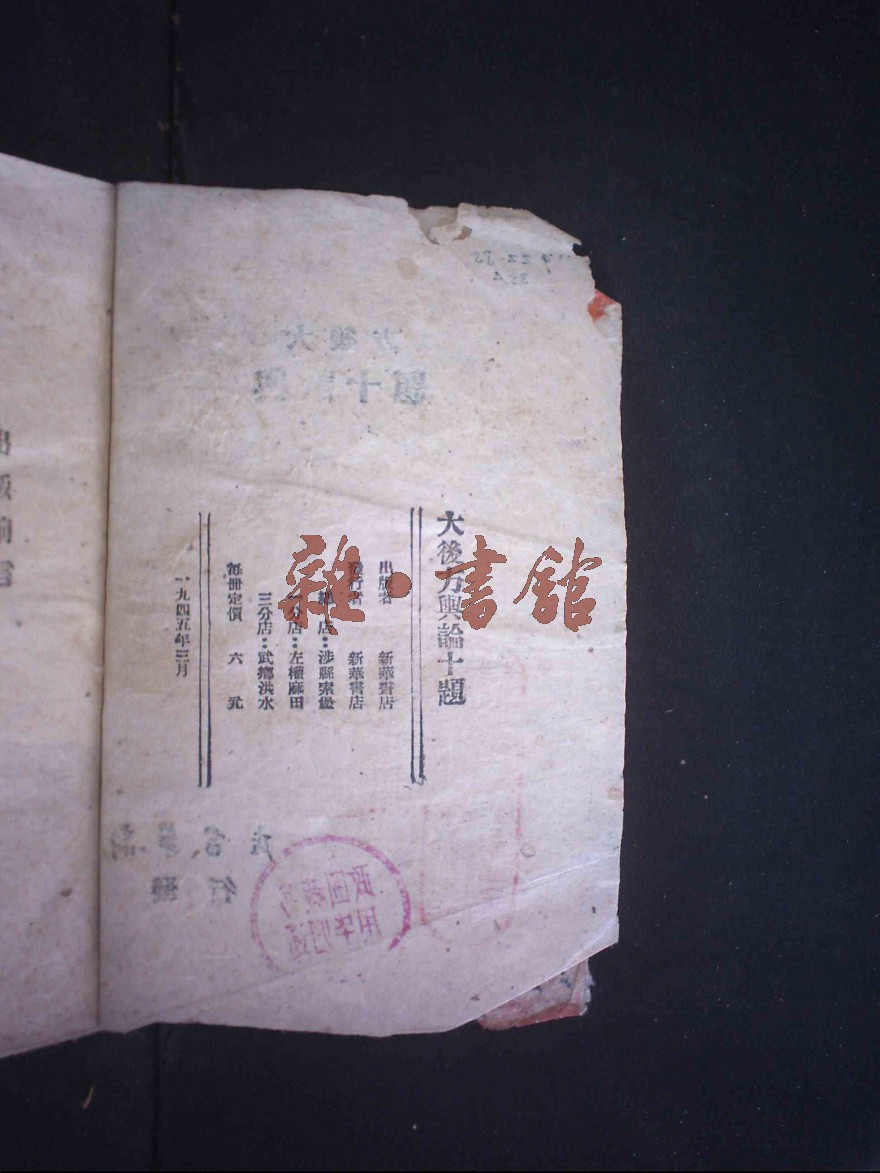 大後方輿論十題
出版者 新華書店
發行者 新華書店
總店：涉縣索堡
一分店：左權麻田
三分店：武鄉洪水
每冊定價 六元
一九四五年三月
雜·書館
出版前言